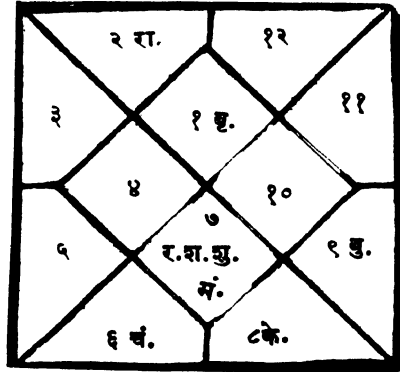 २ रा.
१२
३
१ बृ.
११
४
१०
७
र.श.शु.
मं.
५
९ बु.
६ चं.
८के.